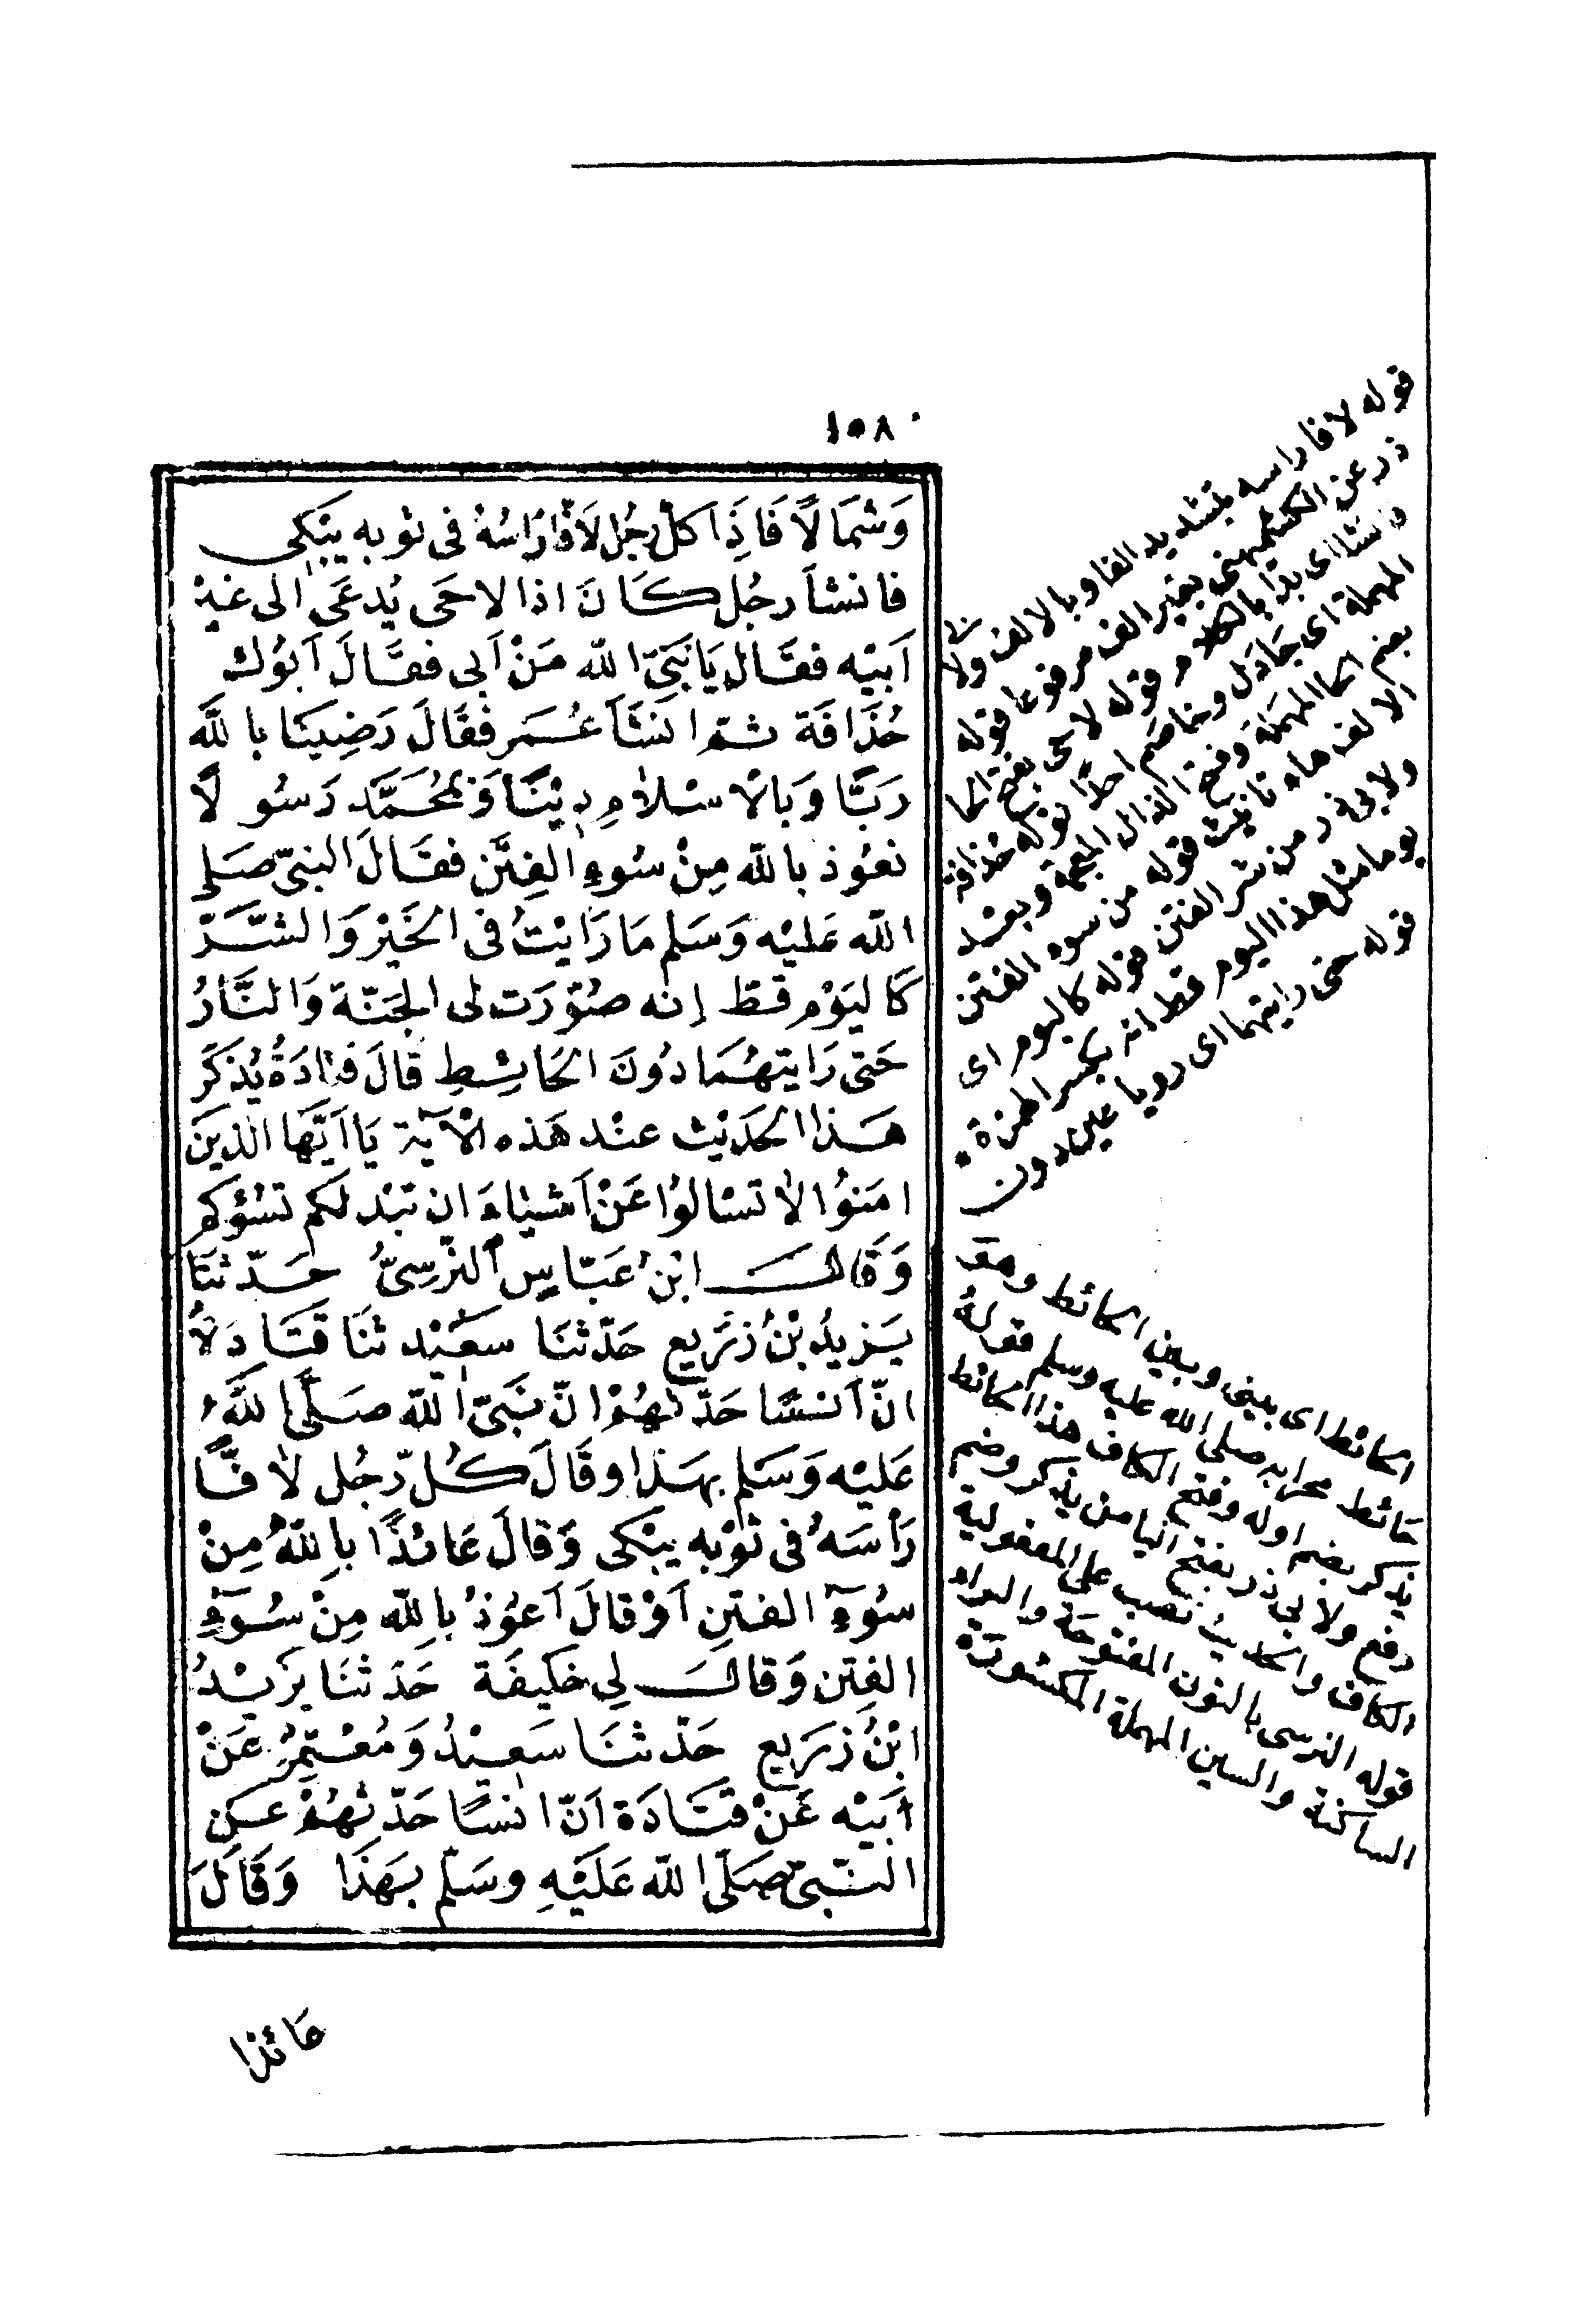 ١٥٨٠
وَشمَالًا فَاذَا كل رجُل لَافٌّ رَاسُهُ فى ثوبه يبْكى
فانشأ رجُل كَانَ اذا لاحَى يُدعَى الى غيْر
اَبيْه فقَال يَا نَبَىّ الله مَنْ اَبى فقَالَ اَبُوك
حُذَافَة ثم انشَأ عُمَر فقَالَ رَضِينَا بالله
رَبًّا وَبالاسْلامِ دِيْنًا وَبمُحَمَّد رَسُولًا
نعُوذ بالله مِنْ سُوءِ الفِتَن فقَالَ النبىّ صَلى
الله عَليْه وَسَلم مَا رَايْتُ فى الخَيْر وَالشَّرّ
كَاليَوْم قطّ إنه صُوّرَت لى الجَنّة وَالنَّارُ
حَتى رَايتهُمَا دُونَ الحَائِطِ قالَ قتادَةُ يُذكَرُ
هَذا الحَدَيْث عنْد هَذه الْآيَة يَا اَيّهَا الذينَ
امَنوُا لا تسْالوُا عَنْ اَشيَاءَ ان تبْد لكم تسُؤكم
وَقَالَ ابْنُ عَبّاسٍ النّرْسِىُّ حَدّثنَا
يَزيدُ بْنُ زرَيع حَدّثنَا سعَيْد ثنَا قتَادَةُ
انّ اَنسًا حَدّثهُمْ انّ نَبىّ الله صَلَّى اللَّهُ
عَليْه وَسَلم بهَذا وقَالَ كُلّ رّجُل لافًّا
رَأسَهُ فى ثوْبه يبْكى وَقالَ عَائذًا بِاللهِ مِنْ
سُوءِ الفتَنِ اَوْ قالَ اَعوُذُ بالله مِنْ سُوءِ
الفِتَن وَقالَ لِى خَليفَة حَدثنَا يزَيْدُ
ابْنُ زرَيع حَدّثنَا سَعيْدُ وَمُعْتَمِرُ عَنْ
اَبيْه عَنْ قتَادَة اَنّ انسًا حَدّثهُمْ عَن
النّبىّ صَلّى الله عَلَيْهِ وسَلّم بهَذَا وَقَالَ
عَائذا
قوله لافا راسه بتشديد الفا وبالالف ولابى
ذر عن الكشميهنى بغير الف مرفوعا قوله
فانشا اى بدا بالكلام قوله لاحى بفتح الحا
المهملة اى جادل وخاصم احدًا قوله حذافة
بضم الحا المهملة وفتح الذال المعجمة وبعد
الالف فاء تانيث قوله من سوء الفتن
ولابى ذر من شر الفتن قوله كاليوم اى
يوما مثل هذا اليوم قط انه بكسر الهمزة
قوله حتى رايتهما اى رويا عين دون
الحائط اى بينى وبين الحائط وهو
حائط محرابه صلى الله عليه وسلم قوله
يذكر بضم اوله وفتح الكاف هذا الحائط
رفع ولابى ذر بفتح اليا من يذكر وضم
الكاف والحديث نصب على المفعولية
قوله النرسى بالنون المفتوحة والراء
الساكنة والسين المهملة المكسورة